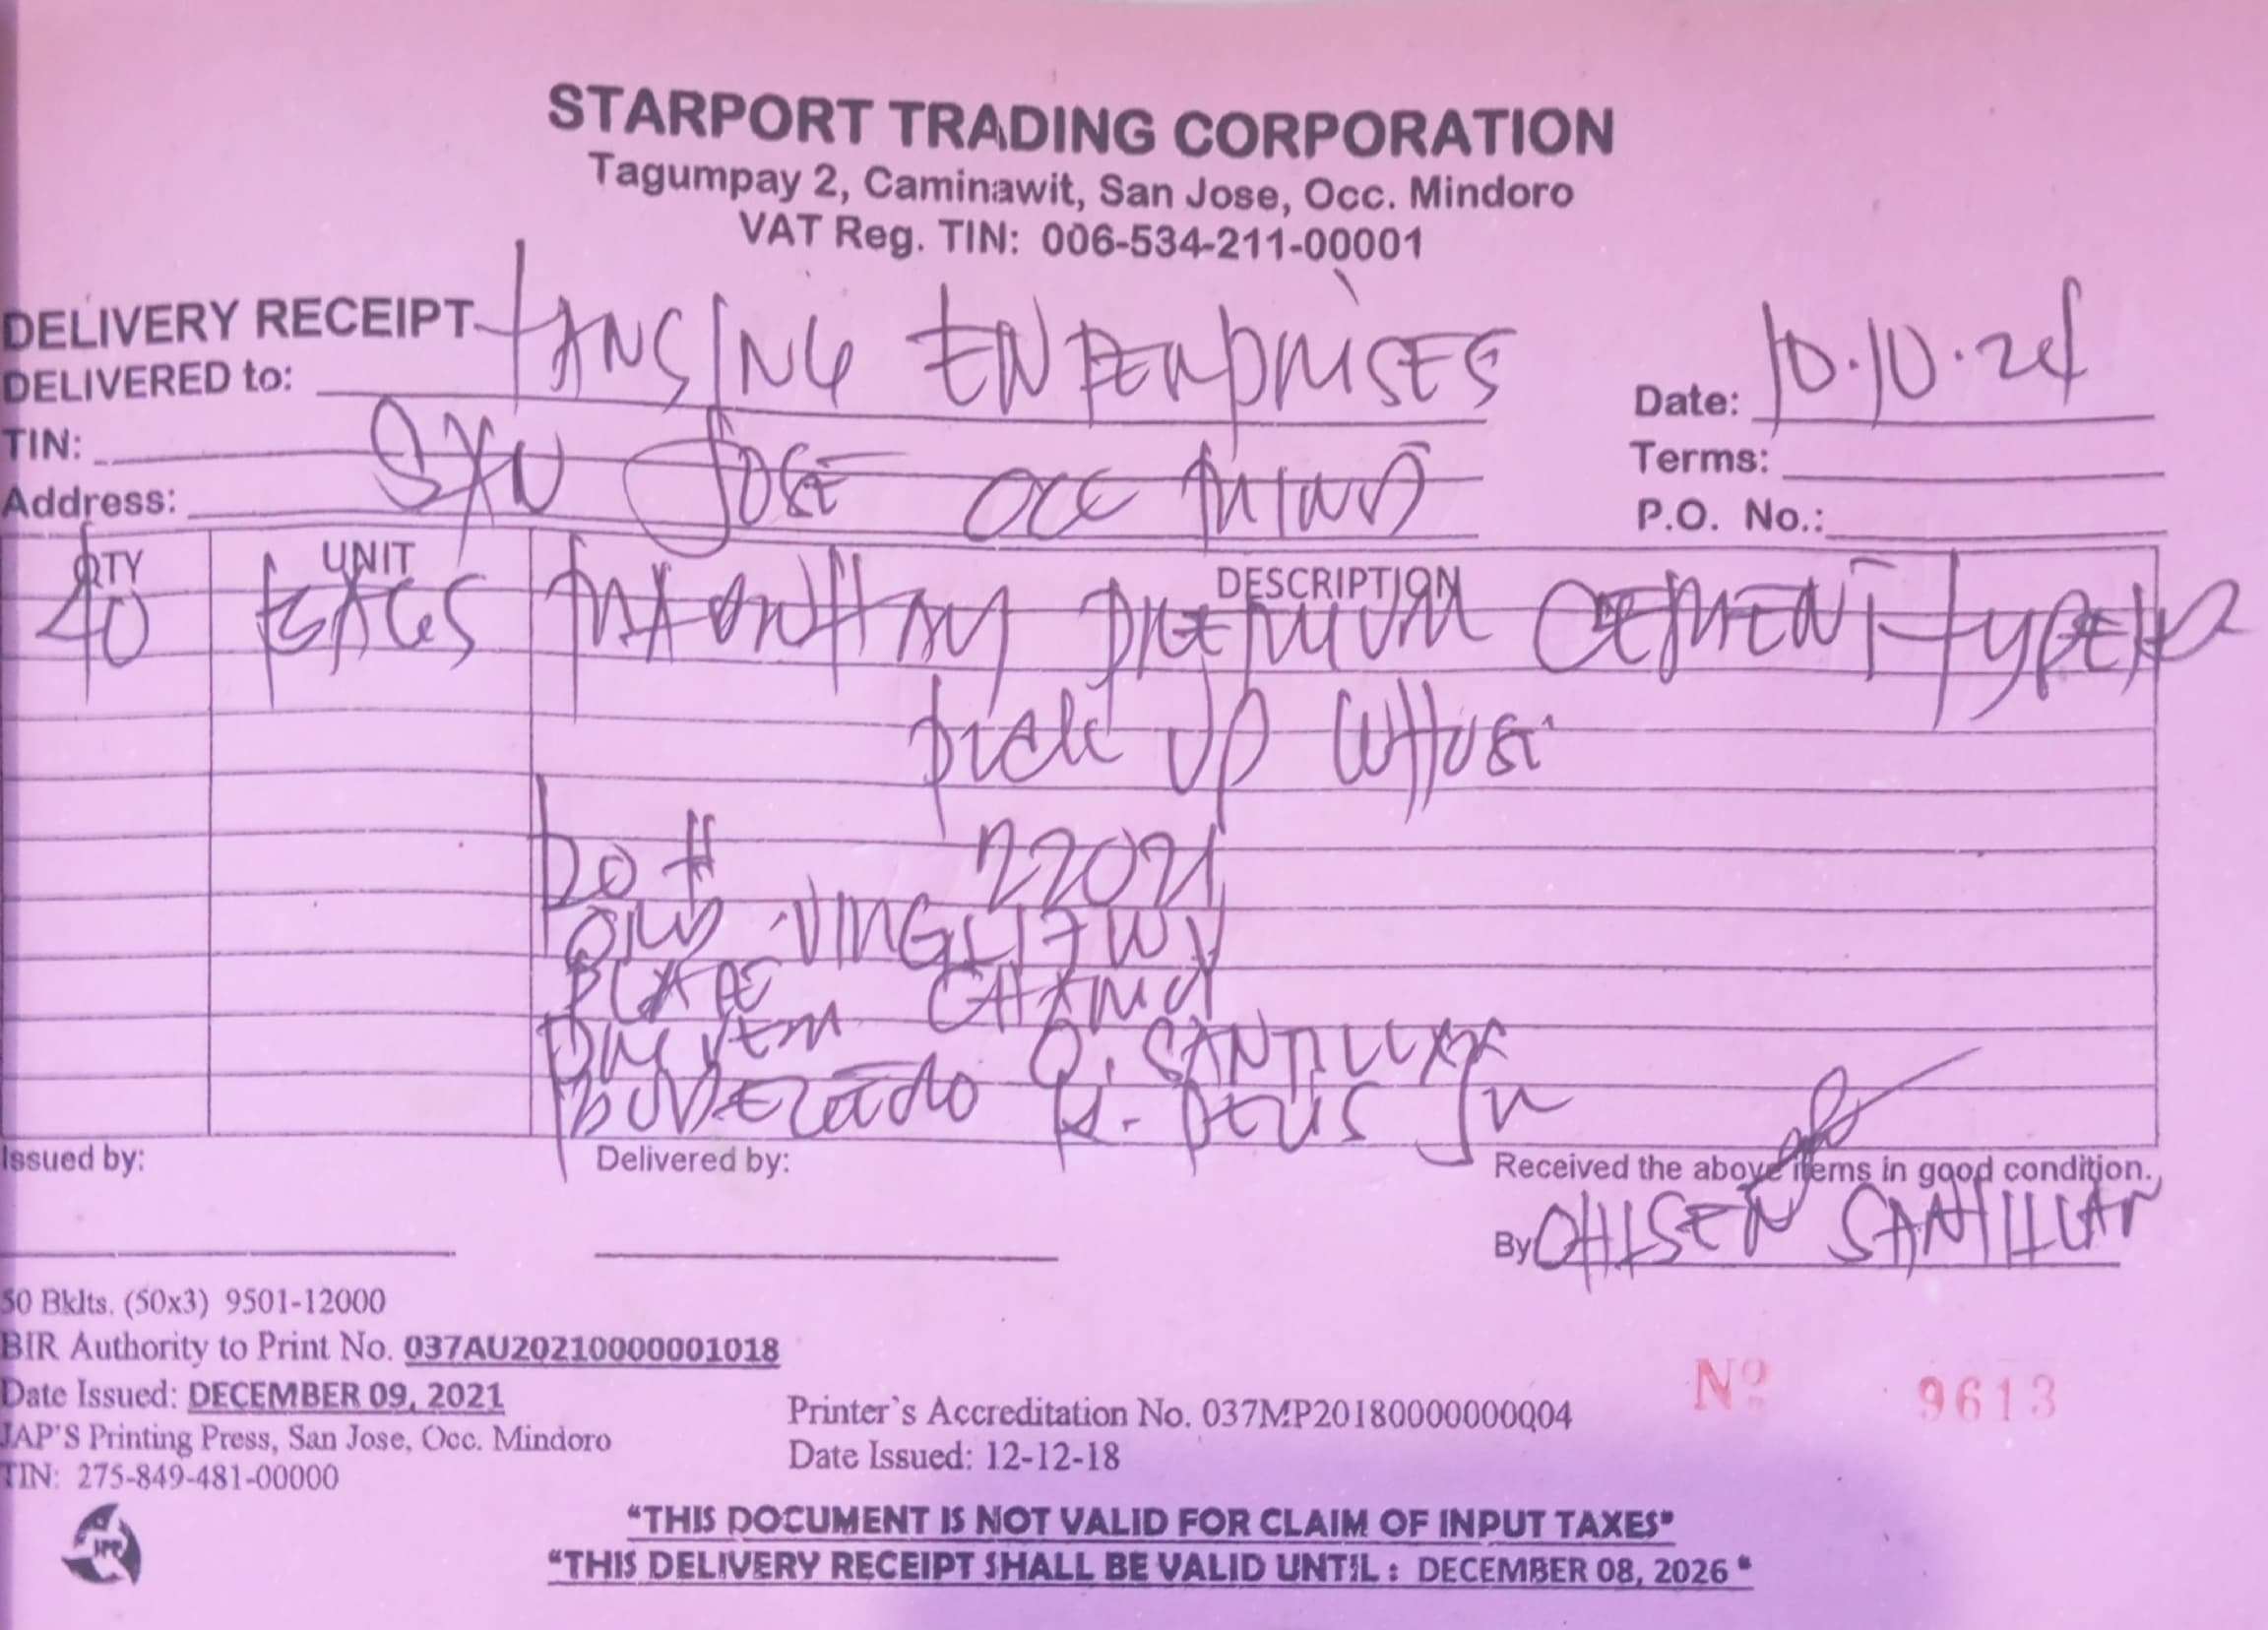 STARPORT TRADING CORPORATION
Tagumpay 2, Caminawit, San Jose, Occ. Mindoro
VAT Reg. TIN: 006-534-211-00001
DELIVERY RECEIPT
DELIVERED to: TANSING ENTERPRISES
Date: 10.10.24
TIN:
Terms:
Address: SAN JOSE OCC MIND
P.O. No.:
QTY UNIT DESCRIPTION
40 BAGS PREMIUM CEMENT TYPE
Pick UP WHUSE
DO # 22021
PLATE
O. SANTILLAN
Jr
Issued by:
Delivered by:
Received the above items in good condition.
By OHLSEN SANTILLAN
50 Bklts. (50x3) 9501-12000
BIR Authority to Print No. 037AU20210000001018
Date Issued: DECEMBER 09, 2021
JAP'S Printing Press, San Jose, Occ. Mindoro
TIN: 275-849-481-00000
Printer`s Accreditation No. 037MP20180000000004
Date Issued: 12-12-18
Nº 9613
JPP
"THIS DOCUMENT IS NOT VALID FOR CLAIM OF INPUT TAXES"
"THIS DELIVERY RECEIPT SHALL BE VALID UNTIL : DECEMBER 08, 2026"